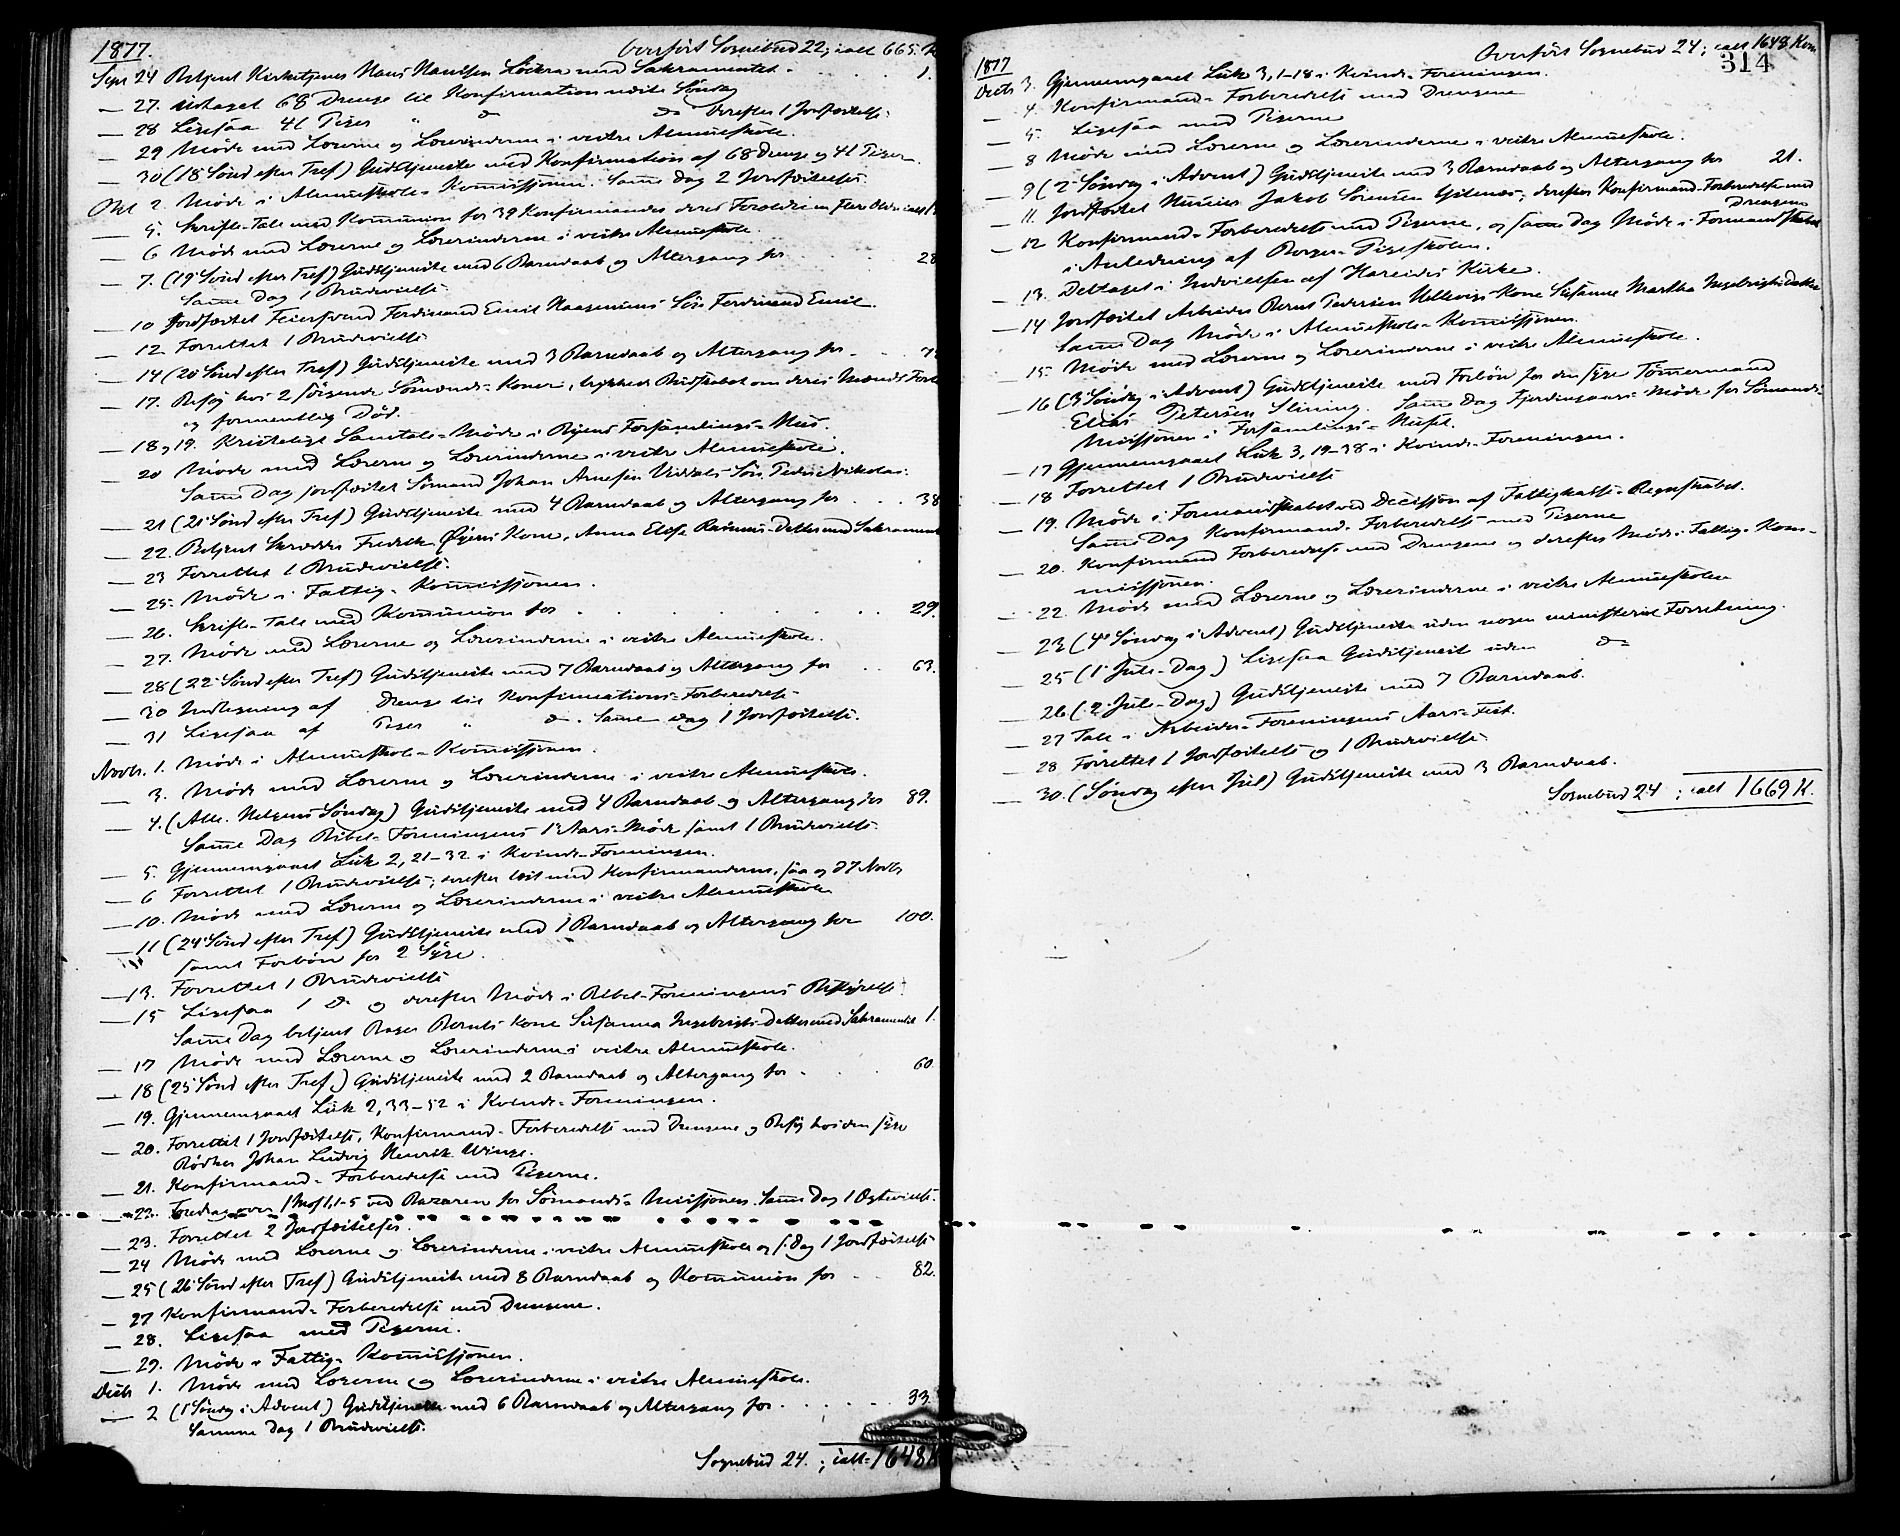 1877. Overført Sognebud 22; ialt 665. K
Sept 24 Betjent Kirketjener Hans Hansen med Sakramentet 1.
— 27. Udtaget 68 Drenge til Konfirmation næste Søndag
— 28 Ligesaa 41 Piger " do do derefter 1 Jordfæstelse.
— 29 Møde med Lærerne og Lærerinderne i vestre Almueskole.
— 30 (18 Sønd efter Tref) Gudstjeneste med Konfirmation af 68 Drenge og 41 Piger.
Okt 2. Møde i Almueskole-Kommissjonen. Samme Dag 2 Jordfæstelser.
— 5. Skrifte-Tale med Kommunion for 39 Konfirmander deres Forældre
— 6 Møde med Lærerne og Lærerinderne i vestre Almueskole.
— 7. (19 Sønd efter Tref) Gudstjeneste med 6 Barnedaab og Altergang for 28
Samme Dag 1 Brudevielse.
— 10 Jordfæstet Ferdinand Emil Søn Ferdinand Emil.
— 12 Forrettet 1 Brudevielse
— 14 (20 Sønd efter Tref) Gudstjeneste med 3 Barnedaab og Altergang for
— 17. Besøg hos 2 sørgende Sømænds-Koner, Budskabet om deres Mænds
og formentlig Død.
— 18 og 19. Kristeligt Samtale-Møde i Byens Forsamlings-Hus.
— 20 Møde med Lærerne og Lærerinderne i vestre Almueskole.
Samme Dag jordfæstet Sømand Johan Arnesen Søn Peder Nikolai.
— 21 (21 Sønd efter Tref) Gudstjeneste med 4 Barnedaab og Altergang for 38
— 22. Betjent Skrædder Fredrik Øyens Kone, Anna Elise Rasmus-Datter med Sakrament
— 23 Forrettet 1 Brudevielse.
— 25. Møde i Fattig-Kommissjonen.
— 26. Skrifte-Tale med Kommunion for 29.
— 27. Møde med Lærerne og Lærerinderne i vestre Almueskole.
— 28 (22 Sønd efter Tref) Gudstjeneste med 7 Barnedaab og Altergang for 63.
— 30 Indtegning af Drenge til Konfirmations-Forberedelse
— 31 Ligesaa af Piger " do. Samme Dag 1 Jordfæstelse.
Novbr. 1. Møde i Almueskole-Kommissjonen.
— 3. Møde med Lærerne og Lærerinderne i vestre Almueskole.
— 4. (Alle Helgens Søndag) Gudstjeneste med 4 Barnedaab og Altergang for 89.
Samme Dag Bibel-Foreningens 1 Aars-Møde samt 1 Brudevielse.
— 5. Gjennemgaaet Luk 2, 21-32 i Kvinde-Foreningen.
— 6 Forrettet 1 Brudevielse; derefter læst med Konfirmanderne, saa og d 7 Novbr
— 10. Møde med Lærerne og Lærerinderne i vestre Almueskole
— 11 (24 Sønd efter Tref) Gudstjeneste med 1 Barnedaab og Altergang for 100.
samt Forbøn for 2 Syge.
— 13. Forrettet 1 Brudevielse
— 15 Ligesaa 1 do og derefter Møde i Bibel-Foreningens Bestyrelse.
Samme Dag betjent Bager Bernts Kone Susanna Ingebrigts-Datter med Sakramentet 1.
— 17 Møde med Lærerne og Lærerinderne i vestre Almueskole.
— 18 (25 Sønd efter Tref) Gudstjeneste med 2 Barnedaab og Altergang for 60
— 19. Gjennemgaaet Luk 2, 33-52 i Kvinde-Foreningen.
— 20. Forrettet 1 Jordfæstelse, Konfirmand-Forberedelse med Drengene og Besøg hos den syge
Bødker Johan Ludvig Henrik Winge.
— 21. Konfirmand-Forberedelse med Pigerne.
— 22. Foredrag over 1 Mos 1, 1-5 ved Bazaren for Sømands-Missjonen. Samme Dag 1 Ægtevielse.
— 23. Forrettet 2 Jordfæstelser.
— 24 Møde med Lærerne og Lærerinderne i vestre Almueskole og s. Dag 1 Jordfæstelse
— 25 (26 Sønd efter Tref) Gudstjeneste med 8 Barnedaab og Kommunion for 82.
— 27 Konfirmand-Forberedelse med Drengene.
— 28. Ligesaa med Pigerne.
— 29. Møde i Fattig-Kommissjonen.
Decbr 1. Møde med Lærerne og Lærerinderne i vestre Almueskole.
— 2 (1 Søndag i Advent) Gudstjeneste med 6 Barnedaab og Altergang for 33.
Samme Dag 1 Brudevielse.
Sognebud 24. ; ialt 1648 K
1877 Overført Sognebud 24; ialt 1648 Kom
314
Decbr 3. Gjennemgaaet Luk 3, 1-18 i Kvinde-Foreningen.
— 4. Konfirmand-Forberedelse med Drengene
— 5. Ligesaa med Pigerne
— 8 Møde med Lærerne og Lærerinderne i vestre Almueskole.
— 9 (2 Søndag i Advent) Gudstjeneste med 3 Barnedaab og Altergang for 21.
— 11. Jordfæstet Jakob Sørensen; derefter Konfirmand-Forberedelse med
Drengene
— 12 Konfirmand-Forberedelse med Pigerne, og samme Dag Møde i Formandskabet
i Anledning af Borger-Pigeskolen.
— 13. Deltaget i Indvielsen af Hareids Kirke.
— 14 Jordfæstet Arbeider Bernt Pedersen Kone Susanne Martha Ingebrigts Datter
Samme Dag Møde i Almueskole-Kommissjonen.
— 15. Møde med Lærerne og Lærerinderne i vestre Almueskole.
— 16 (3 Søndag i Advent) Gudstjeneste med Forbøn for den syge Tømmermand
Elias Petersen Slining. Samme Dag Fjerdingaars-Møde for Sømands-
Missjonen i Forsamlings-Huset.
— 17 Gjennemgaaet Luk 3, 19-38 i Kvinde-Foreningen.
— 18 Forrettet 1 Brudevielse
— 19. Møde i Formandskabet ved Decision af Fattigkasse-Regnskabet.
Samme Dag Konfirmand-Forberedelse med Pigerne
— 20. Konfirmand Forberedelse med Drengene og derefter Møde i Fattig-Kom-
missjonen.
— 22. Møde med Lærerne og Lærerinderne i vestre Almueskolen
— 23 (4 Søndag i Advent) Gudstjeneste uden nogen ministeriel Forretning.
— 25 (1 Jule-Dag) Ligesaa Gudstjeneste uden do
— 26 (2 Jule-Dag) Gudstjeneste med 7 Barnedaab.
— 27 Tale i Arbeider-Foreningens Aars-Fest.
— 28 Forrettet 1 Jordfæstelse og 1 Brudevielse
— 30. (Søndag efter Jul) Gudstjeneste med 3 Barnedaab.
Sognebud 24 ; ialt 1669 K.